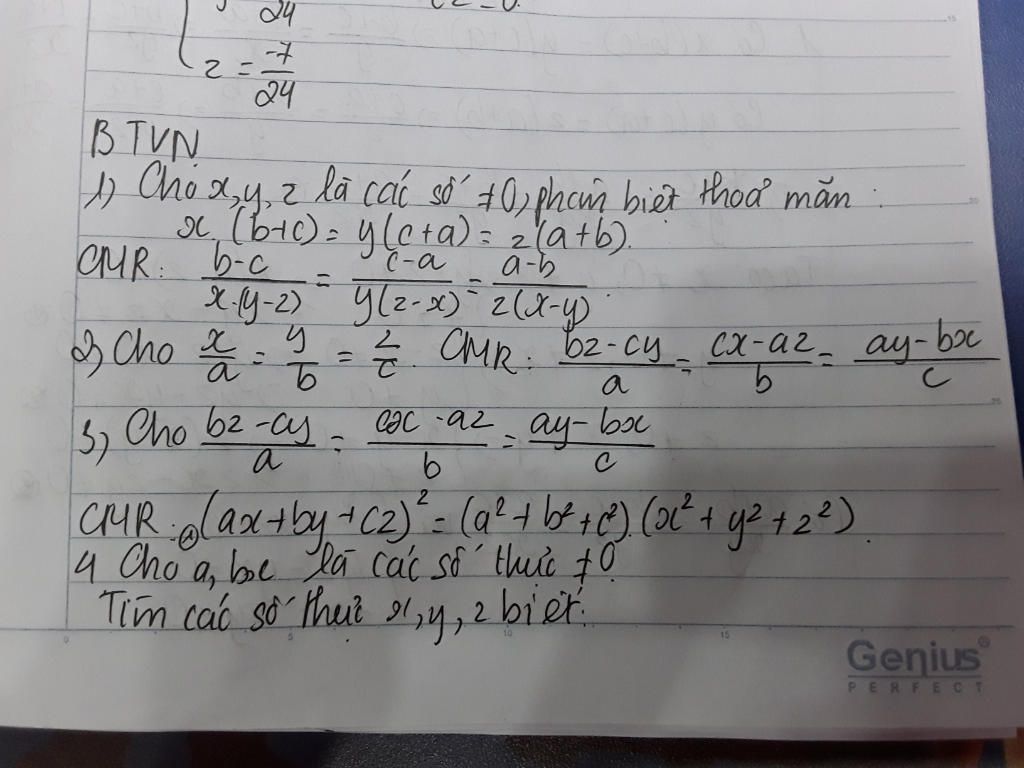 24
z = -7/24
BTVN
1) Cho x, y, z là các số ≠0, phân biệt thoả mãn :
x (b+c) = y(c+a) = z(a+b).
CMR: (b-c)/(x.(y-z)) = (c-a)/(y(z-x)) = (a-b)/(z(x-y)).
2) Cho x/a = y/b = z/c. CMR: (bz-cy)/a = (cx-az)/b = (ay-bx)/c
3) Cho (bz-cy)/a = (cx-az)/b = (ay-bx)/c
CMR: (ax+by+cz)² = (a²+b²+c²).(x²+y²+z²).
4 Cho a, b, c là các số thực ≠0
Tìm các số thực x, y, z biết:
Genius
PERFECT